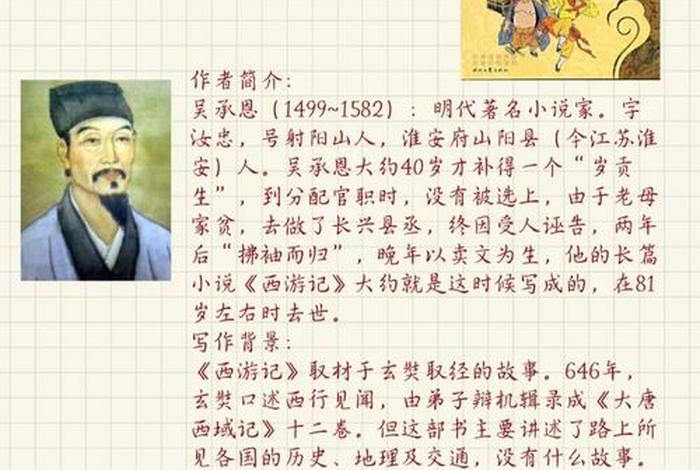 作者简介:
吴承恩（1499~1582）：明代著名小说家。字
汝忠，号射阳山人，淮安府山阳县（今江苏淮
安）人。吴承恩大约40岁才补得一个“岁贡
生”，到分配官职时，没有被选上，由于老母
家贫，去做了长兴县丞，终因受人诬告，两年
后“拂袖而归”，晚年以卖文为生，他的长篇
小说《西游记》大约就是这时候写成的，在81
岁左右时去世。
写作背景:
《西游记》取材于玄奘取经的故事。646年，
玄奘口述西行见闻，由弟子辩机辑录成《大唐
西域记》十二卷。但这部书主要讲述了路上所
见各国的历史、地理及交通，没有什么故事。